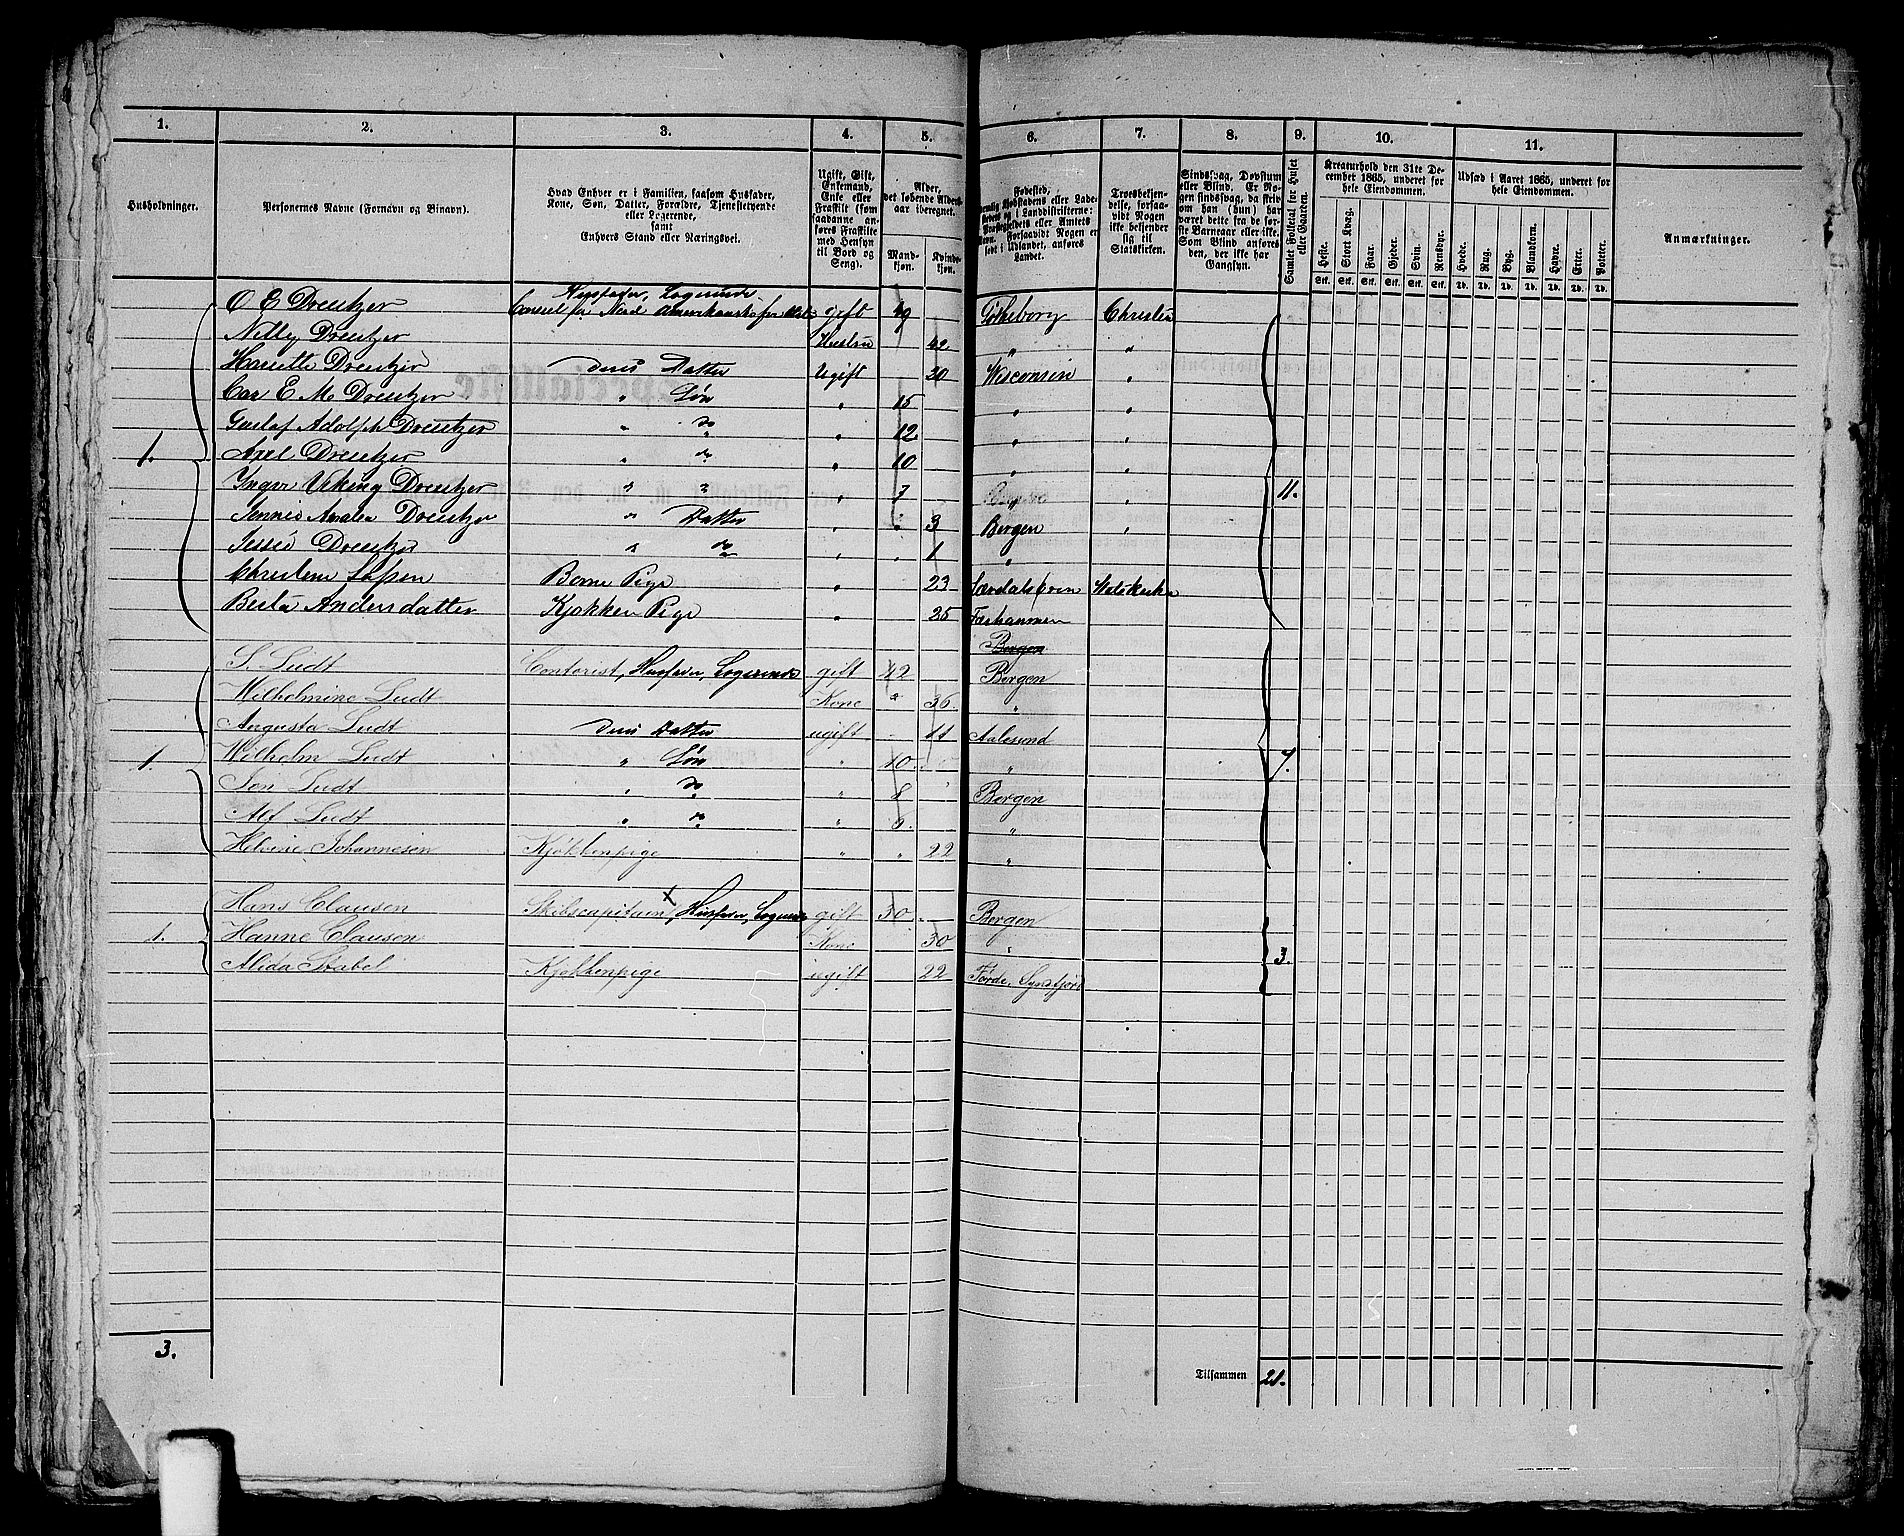 1. 2. 3. 4. 5. 6. 7. 8. 9. 10. 11.
Husholdninger.
Personernes Navne (Fornavn og Binavn).
Hvad Enhver er i Familien, saasom Husfader, Kone, Søn, Datter, Forældre, Tjenestetyende eller Logerende, samt Enhvers Stand eller Næringsvei.
Ugift, Gift, Enkemand, Enke eller Fraskilt (som saadanne anføres Fraskilte med Hensyn til Bord og Seng).
Alder, det løbende Aldersaar iberegnet.
Mandkjøn. Kvindekjøn.
Fødested,
Troesbekjendelse, forsaavidt Nogen ikke bekjender sig til Statskirken.
Sindssvag, Døvstum eller Blind. Er Nogen sindssvag, da skrives om han (hun) har været dette fra de første Barneaar eller ikke. Som Blind anføres den, der ikke har Gangsyn.
Samlet Folketal for Huset eller Gaarden.
Kreaturhold den 31te December 1865, underet for hele Eiendommen.
Heste. Stort Kvæg. Faar. Gjeder. Svin. Rensdyr.
Stk. Stk. Stk. Stk. Stk. Stk.
Udsæd i Aaret 1865, underet for hele Eiendommen.
Hvede. Rug. Byg. Blandkorn. Havre. Erter. Poteter.
Td. Td. Td. Td. Td. Td. Td.
Anmærkninger.
Husfader, Logerende
O E Dreutzer Consul for Nord gift 49 Gøtheborg
Netty Dreutzer Hustru 42 "
Hariette Dreutzer Deres Datter Ugift 20 Wisconsin "
Car E M Dreutzer " Søn " 15 " "
Gustaf Adolph Dreutzer " do " 12 " "
1. Axel Dreutzer " do " 10 " "
Ingvi Viking Dreutzer " " " 7 " " 11.
Jennie Amalia Dreutzer " Datter " 3 Bergen "
Jessie Dreutzer " do " 1 "
Børne Pige " 23
Berta Andersdatter Kjøkken Pige " 25
Bergen
S. Ludt Contorist, Husfader, Logerende gift 42 Bergen
Wilhelmine Ludt Kone " 36 "
Augusta Ludt Deres Datter ugift 11 Aalesund
1. Wilhelm Ludt " Søn " 10 " 7.
Ludt " do " 8 Bergen
Ludt " do " 6 "
Johannesen Kjøkkenpige " " 22 "
Hans Clausen Skibscapitain, Husfader, gift 30 Bergen
1. Hanne Clausen Kone 30 " 3.
Alida Stabel Kjøkkenpige ugift 22 Førde,
3. Tilsammen 21.